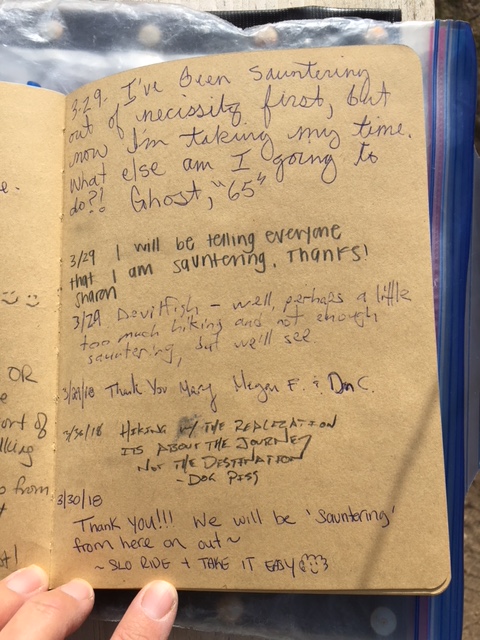 e.
OR
e
ort of
lking
o from
t!
3.29- I've been sauntering
out of necissity first, but
now I'm taking my time.
What else am I going to
do?! Ghost, "65"
3/29 I will be telling everyone
that I am sauntering. Thanks!
Sharon
3/29 Devilfish - well, perhaps a little
too much hiking and not enough
sauntering, but we'll see
3/29/18 Thank You Mary Megan F. & Don C.
3/30/18 Hiking w/ the Realization
its about the Journey
Not the Destination
- Dog Piss
3/30/18
Thank you!!! We will be 'Sauntering'
from here on out ~
~ SLO RIDE + TAKE IT EASY